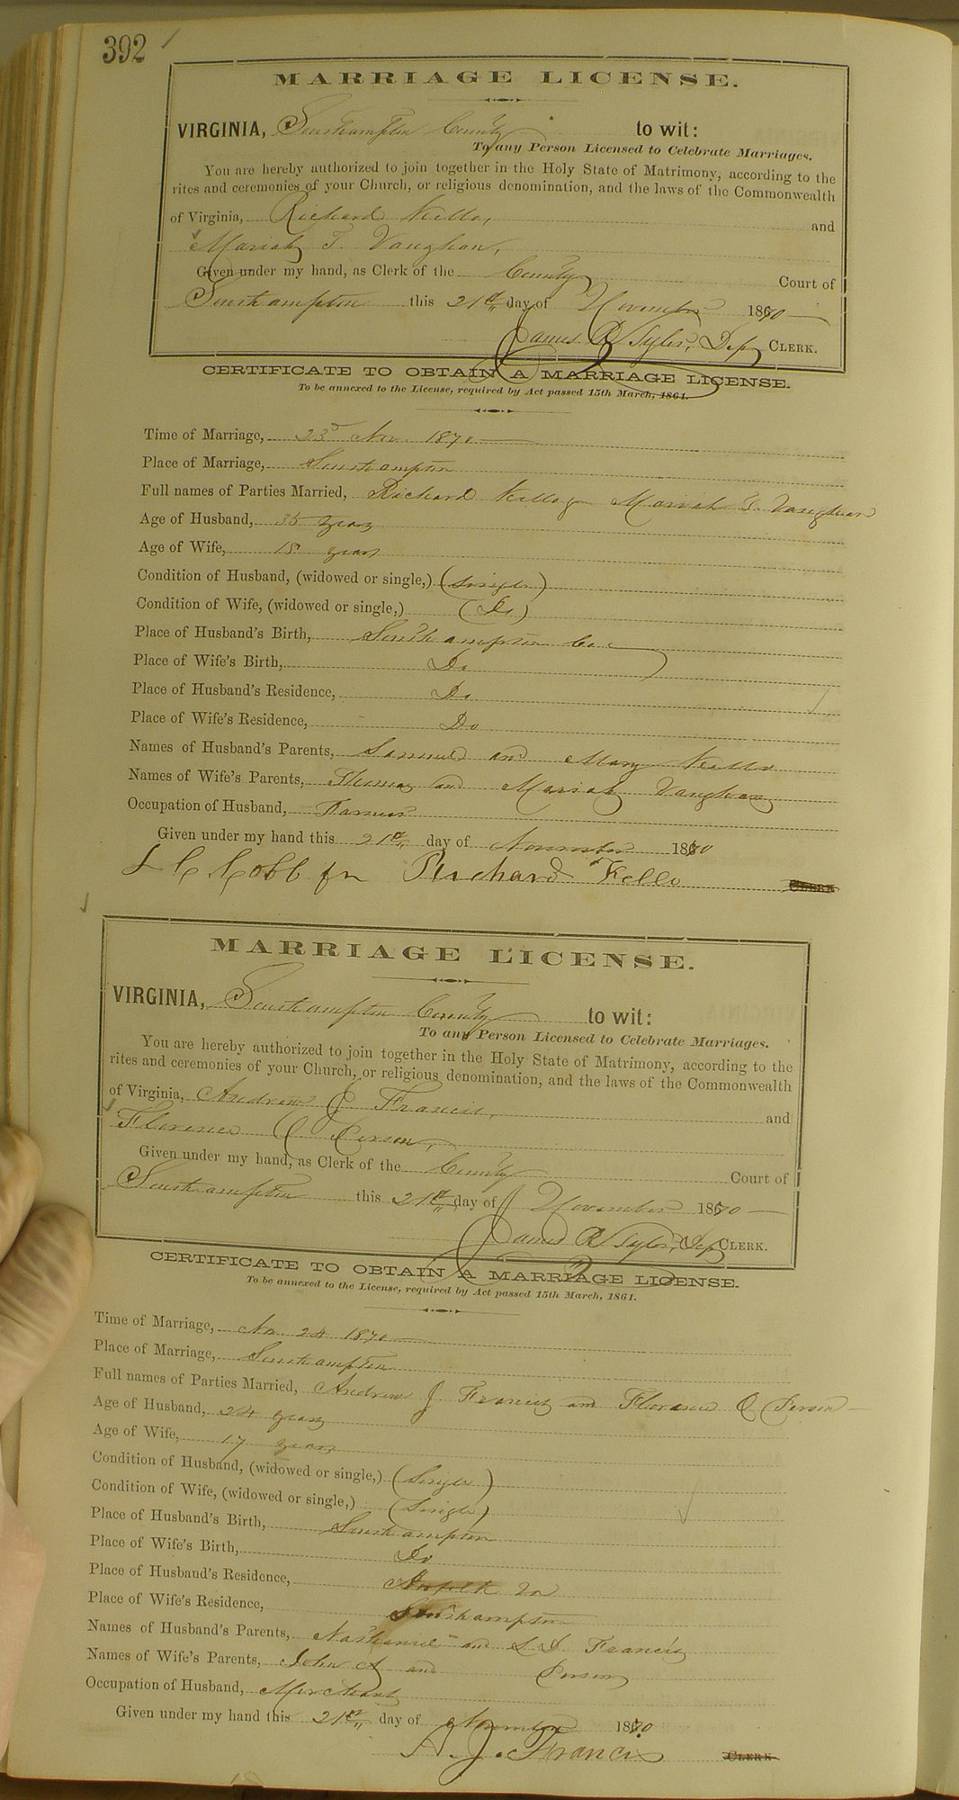 392
MARRIAGE LICENSE.
VIRGINIA, Southampton County to wit:
To any Person Licensed to Celebrate Marriages.
You are hereby authorized to join together in the Holy State of Matrimony, according to the
rites and ceremonies of your Church, or religious denomination, and the laws of the Commonwealth
of Virginia, Richard Kello, and
Mariah T. Vaughan,
Given under my hand, as Clerk of the County Court of
Southampton this 21st day of November 1870
James R Tyler, Dep CLERK.
CERTIFICATE TO OBTAIN A MARRIAGE LICENSE.
To be annexed to the License, required by Act passed 15th March, 1861.
Time of Marriage, 23d Nov. 1870
Place of Marriage, Southampton
Full names of Parties Married, Richard Kello & Mariah T. Vaughan
Age of Husband, 35 years
Age of Wife, 18 years
Condition of Husband, (widowed or single,) (Single)
Condition of Wife, (widowed or single,) (Do)
Place of Husband's Birth, Southampton Co
Place of Wife's Birth, Do
Place of Husband's Residence, Do
Place of Wife's Residence, Do
Names of Husband's Parents, Samuel and Mary Kello
Names of Wife's Parents, Thomas and Mariah Vaughan
Occupation of Husband, Farmer
Given under my hand this 21st day of November 1870
L C Cobb for Richard Kello CLERK
MARRIAGE LICENSE.
VIRGINIA, Southampton County to wit:
To any Person Licensed to Celebrate Marriages.
You are hereby authorized to join together in the Holy State of Matrimony, according to the
rites and ceremonies of your Church, or religious denomination, and the laws of the Commonwealth
of Virginia, Andrew J Francis, and
Florence Q Person,
Given under my hand, as Clerk of the County Court of
Southampton this 21st day of November 1870
James R Tyler, Dep CLERK.
CERTIFICATE TO OBTAIN A MARRIAGE LICENSE.
To be annexed to the License, required by Act passed 15th March, 1861.
Time of Marriage, Nov 24 1870
Place of Marriage, Southampton
Full names of Parties Married, Andrew J Francis and Florence Q Person
Age of Husband, 24 years
Age of Wife, 17 years
Condition of Husband, (widowed or single,) (Single)
Condition of Wife, (widowed or single,) (Single)
Place of Husband's Birth, Southampton
Place of Wife's Birth, Do
Place of Husband's Residence, Norfolk Va
Place of Wife's Residence, Southampton
Names of Husband's Parents, Nathaniel and L. Francis
Names of Wife's Parents, John A and Person
Occupation of Husband, Merchant
Given under my hand this 21st day of November 1870
A. J. Francis CLERK